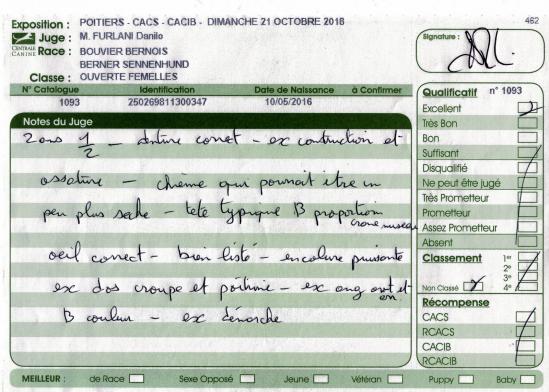 Exposition : POITIERS - CACS - CACIB - DIMANCHE 21 OCTOBRE 2018
462
CENTRALE CANINE
Juge : M. FURLANI Danilo
Race : BOUVIER BERNOIS
BERNER SENNENHUND
Classe : OUVERTE FEMELLES
Signature :
N° Catalogue Identification Date de Naissance à Confirmer
1093 250269811300347 10/05/2016
Notes du Juge
2 ans 1/2 — denture correct - ex contruction et
ossature — chienne qui pourrait être un
peu plus seche - tete typique B proportion
crane museau
oeil correct - bien listé - encolure puissante
ex dos croupe et poitrine - ex ang avt et
arr.
B couleur - ex démarche
Qualificatif n° 1093
Excellent
Très Bon
Bon
Suffisant
Disqualifié
Ne peut être jugé
Très Prometteur
Prometteur
Assez Prometteur
Absent
Classement 1er
2e
3e
Non Classé 4e
Récompense
CACS
RCACS
CACIB
RCACIB
MEILLEUR : de Race Sexe Opposé Jeune Vétéran Puppy Baby